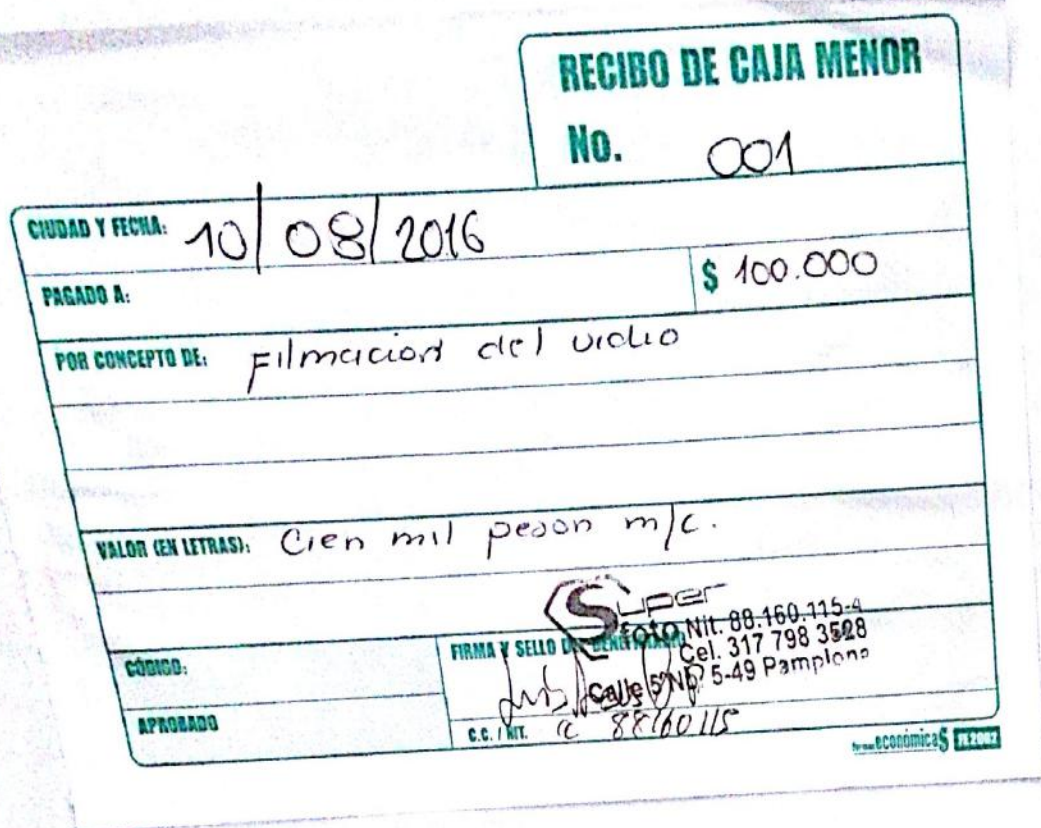 RECIBO DE CAJA MENOR
No. 001
CIUDAD Y FECHA: 10/08/2016
PAGADO A: $ 100.000
POR CONCEPTO DE: Filmacion del video
VALOR (EN LETRAS): Cien mil pesos m/c.
Super
foto Nit. 88.160.115-4
Cel. 317 798 3528
Calle 5 No 5-49 Pamplona
CÓDIGO: FIRMA Y SELLO DEL BENEFICIARIO
APROBADO C.C. / NIT. cc 88160115
formas económicas